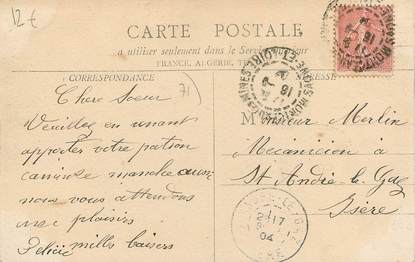 12 €
CARTE POSTALE
a utiliser seulement dans le Service
FRANCE, ALGERIE, T
CORRESPONDANCE
71
Chere Soeur
Veuillez en venant
apporter votre patron
camisole manche
nous vous attendons
avec plaisirs
Félicie mille baisers
Monsieur Merlin
Mecanicien à
St André le Gaz
Isère
SAONE-ET-LOIRE
17
04